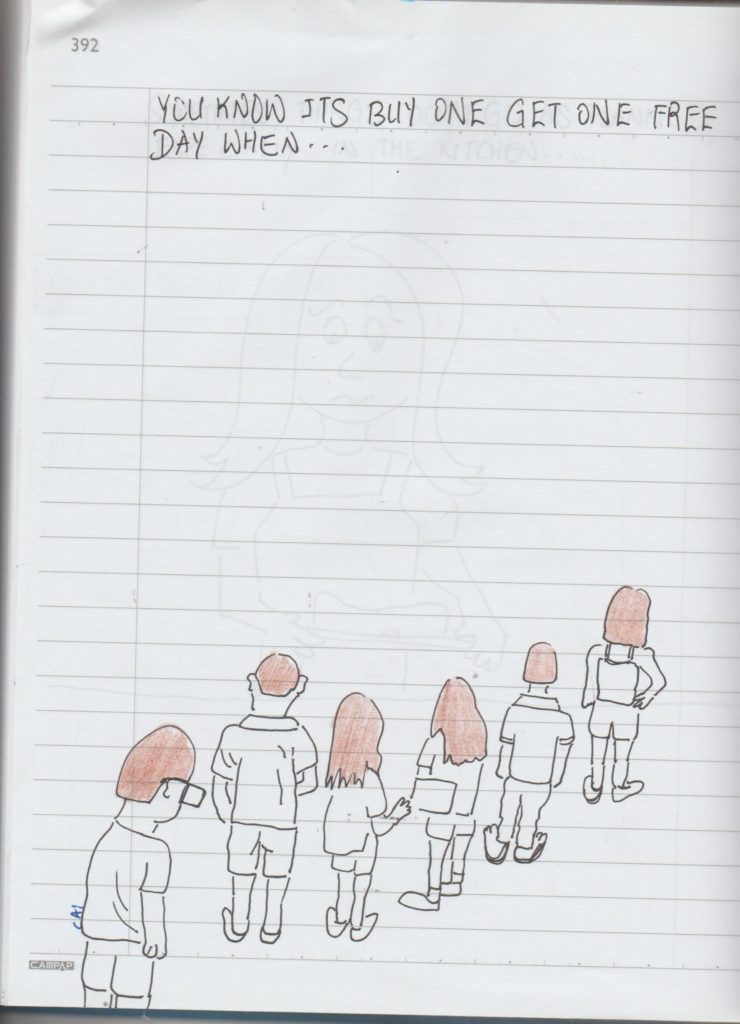 392
YOU KNOW ITS BUY ONE GET ONE FREE
DAY WHEN...
IN THE KITCHEN...
CAI
CAMPAP